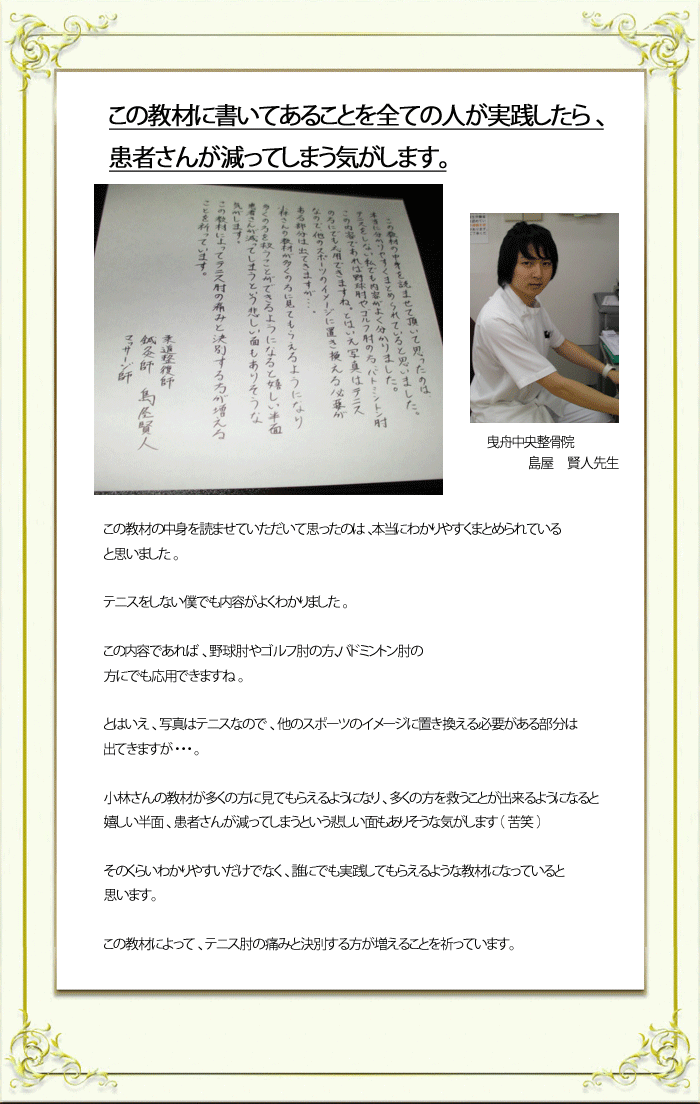 この教材に書いてあることを全ての人が実践したら、
患者さんが減ってしまう気がします。
この教材の中身を読ませて頂いて思ったのは
本当に分かりやすくまとめられていると思いました。
テニスをしない私でも内容がよく分かりました。
この内容であれば野球肘やゴルフ肘の方、バトミントン肘
の方にでも応用できますね。とはいえ写真はテニス
なので他のスポーツのイメージに置き換える必要が
ある部分は出てきますが…。
小林さんの教材が多くの方に見てもらえるようになり
多くの方を救うことができるようになると嬉しい半面
患者さんが減ってしまうという悲しい面もありそうな
気がします。
この教材によってテニス肘の痛みと決別する方が増える
ことを祈っています。
柔道整復師
鍼灸師 島屋賢人
マッサージ師
曳舟中央整骨院
島屋 賢人先生
この教材の中身を読ませていただいて思ったのは、本当にわかりやすくまとめられている
と思いました。
テニスをしない僕でも内容がよくわかりました。
この内容であれば、野球肘やゴルフ肘の方、バドミントン肘の
方にでも応用できますね。
とはいえ、写真はテニスなので、他のスポーツのイメージに置き換える必要がある部分は
出てきますが・・・。
小林さんの教材が多くの方に見てもらえるようになり、多くの方を救うことが出来るようになると
嬉しい半面、患者さんが減ってしまうという悲しい面もありそうな気がします(苦笑)
そのくらいわかりやすいだけでなく、誰にでも実践してもらえるような教材になっていると
思います。
この教材によって、テニス肘の痛みと決別する方が増えることを祈っています。